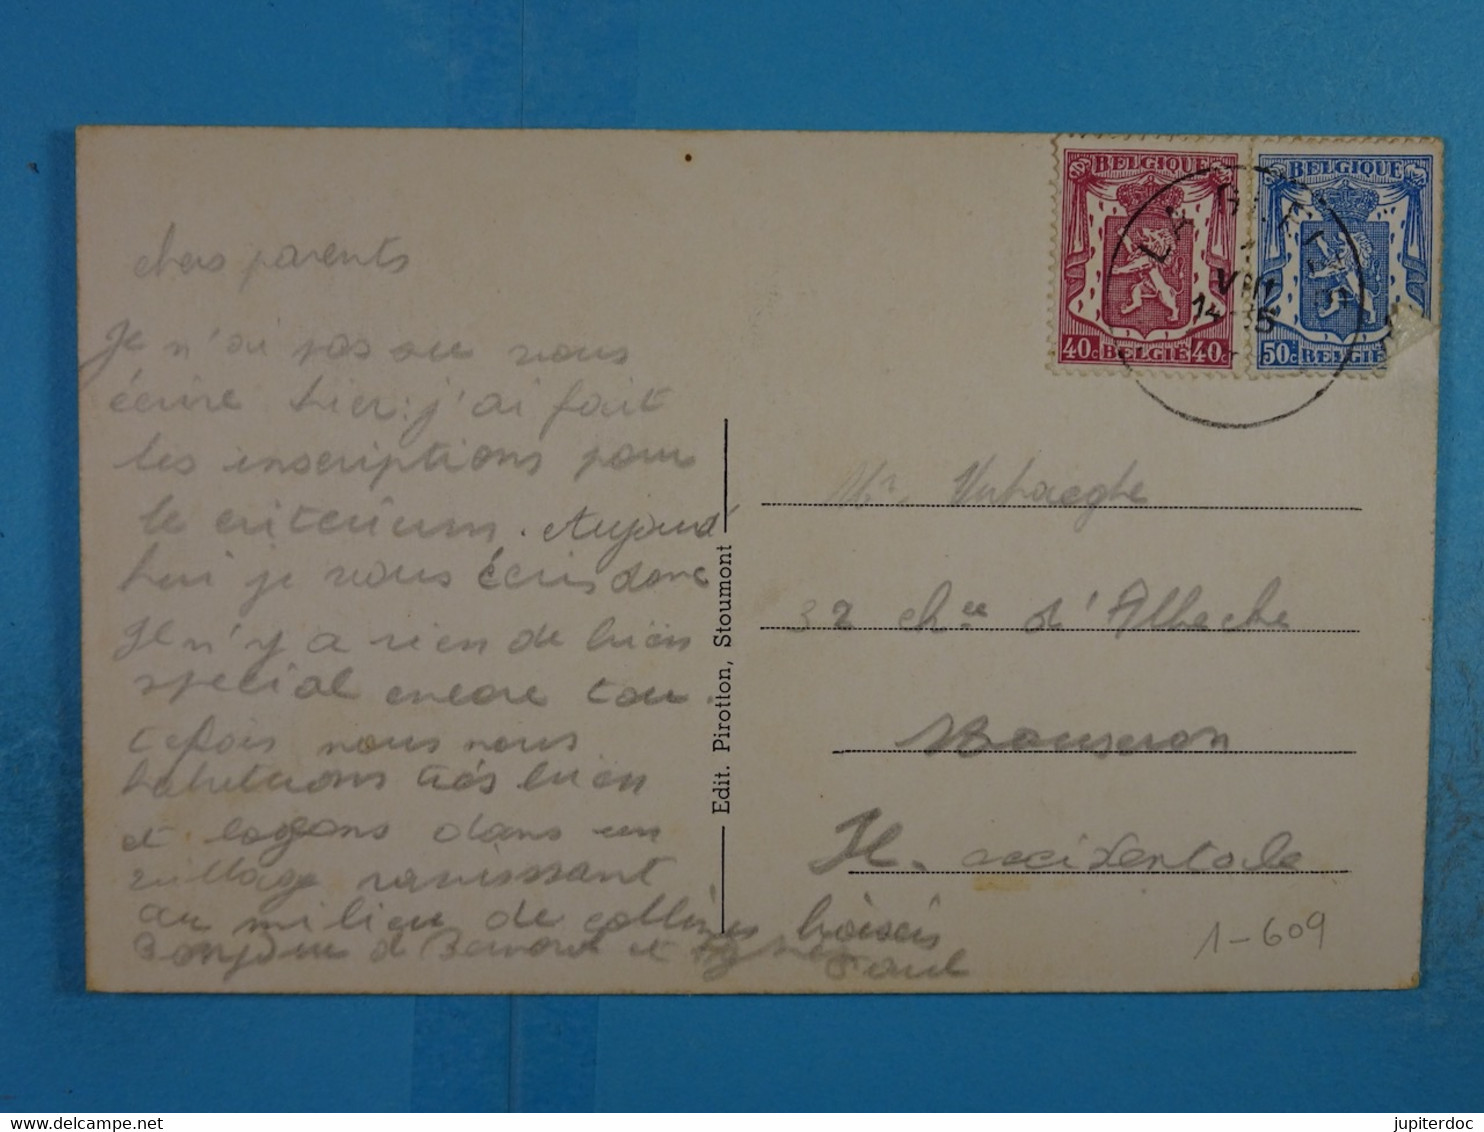 chers parents
Je n'ai pas su vous
écrire hier: j'ai fait
les inscriptions pour
le criterium. Aujourd'
hui je vous écris donc
Il n'y a rien de bien
special encore tou
tefois nous nous
habituons très bien
et logeons dans un
village ravissant
au milieu de collines boisées
Bonjour à Bernard et
Paul
Edit. Pirotton, Stoumont
BELGIQUE
40c BELGIË 40c
BELGIQUE
50c BELGIË
LA GLEIZE
VIII
14-15
Mr Verhaeghe
32 chée d'
Mouscron
Fl. occidentale
1-609
delcampe.net
jupiterdoc